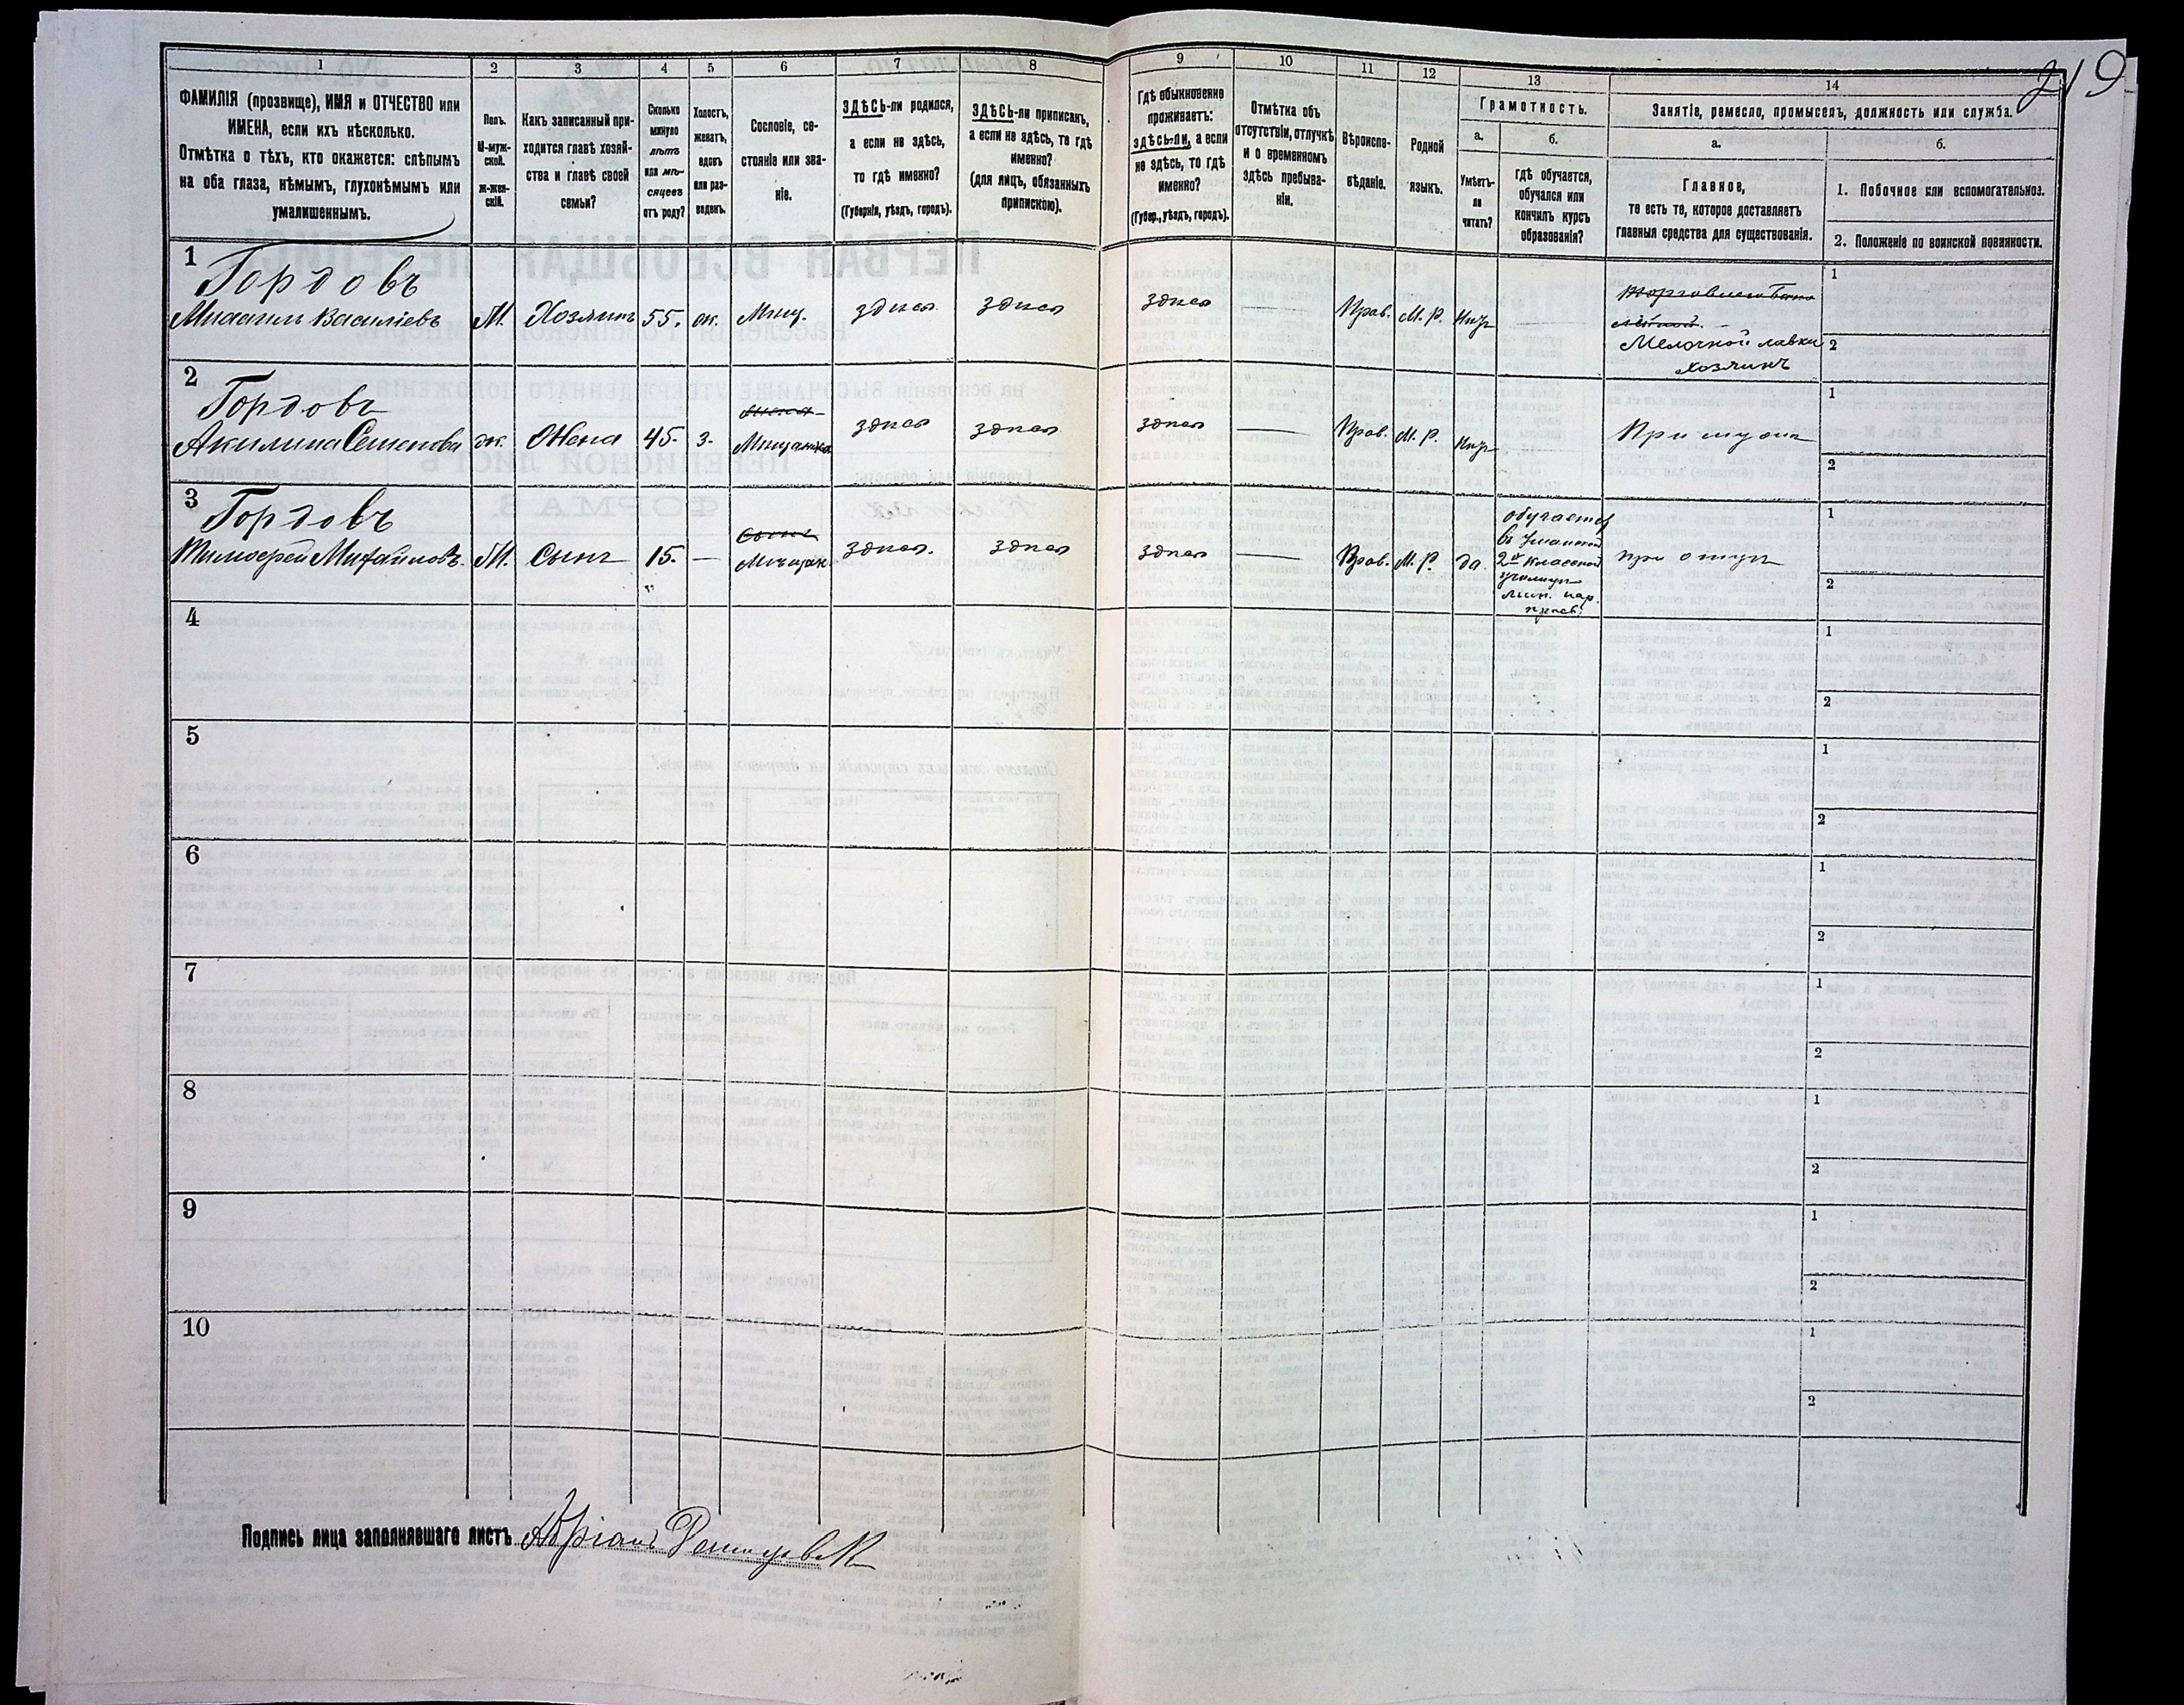 219
1 2 3 4 5 6 7 8 9 10 11 12 13 14
ФАМИЛІЯ (прозвище), ИМЯ и ОТЧЕСТВО или
ИМЕНА, если ихъ нѣсколько.
Отмѣтка о тѣхъ, кто окажется: слѣпымъ
на оба глаза, нѣмымъ, глухонѣмымъ или
умалишеннымъ.
Полъ.
М-муж-
ской.
Ж-жен-
скій.
Какъ записанный при-
ходится главѣ хозяй-
ства и главѣ своей
семьи?
Сколько
минуло
лѣтъ
или мѣ-
сяцевъ
отъ роду?
Холостъ,
женатъ,
вдовъ
или раз-
веденъ.
Сословіе, со-
стояніе или зва-
ніе.
ЗДѢСЬ-ли родился,
а если не здѣсь,
то гдѣ именно?
(Губернія, уѣздъ, городъ).
ЗДѢСЬ-ли приписанъ,
а если не здѣсь, то гдѣ
именно?
(для лицъ, обязанныхъ
припискою).
Гдѣ обыкновенно
проживаетъ:
здѣсь-ли, а если
не здѣсь, то гдѣ
именно?
(Губер., уѣздъ, городъ).
Отмѣтка объ
отсутствіи, отлучкѣ
и о временномъ
здѣсь пребыва-
ніи.
Вѣроиспо-
вѣданіе.
Родной
языкъ.
Грамотность.
а.
Умѣетъ-
ли
читать?
б.
гдѣ обучается,
обучался или
кончилъ курсъ
образованія?
Занятіе, ремесло, промыселъ, должность или служба.
а.
Главное,
то есть то, которое доставляетъ
главныя средства для существованія.
б.
1. Побочное или вспомогательное.
2. Положеніе по воинской повинности.
1
Гордовъ
Михаилъ Василіевъ М. Хозяинъ 55. ж. Мѣщ. здѣсь здѣсь здѣсь — Прав. М. Р. Нѣтъ —
Мелочной лавки
хозяинъ
1
2
2
Гордова
Акилина Семенова ж. Жена 45. з. Мѣщанка здѣсь здѣсь здѣсь — Прав. М. Р. Нѣтъ При мужѣ
1
2
3
Гордовъ
Тимофей Михайловъ. М. Сынъ 15. — Мѣщан. здѣсь. здѣсь здѣсь — Прав. М. Р. да.
обучается
въ Уманской
2х классной
училищѣ
мин. нар.
просв.
при отцѣ
1
2
4
1
2
5
1
2
6
1
2
7
1
2
8
1
2
9
1
2
10
1
2
Подпись лица заполнявшаго листъ Адріанъ